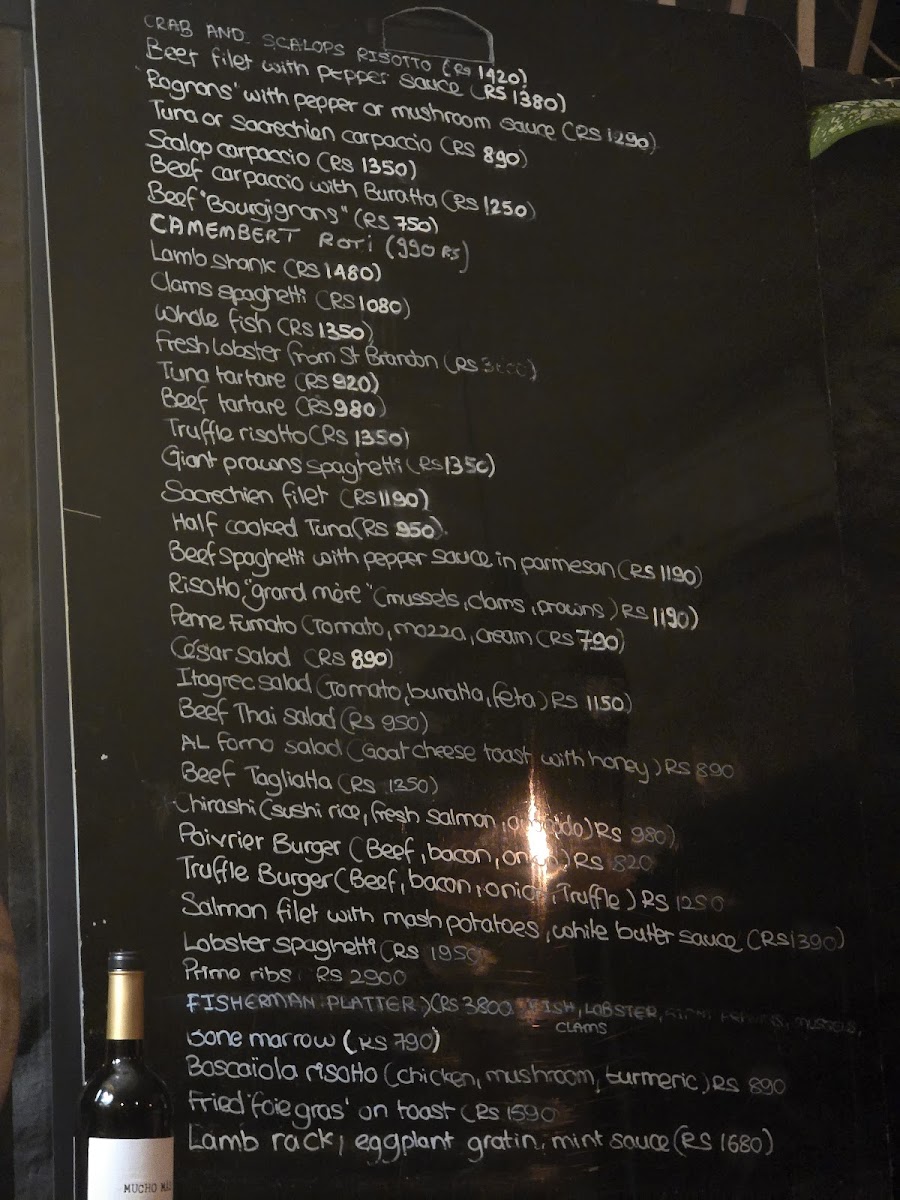 CRAB AND SCALOPS RISOTTO (RS 1420)
Beef filet with pepper sauce (RS 1380)
'Rognons' with pepper or mushroom sauce (RS 1290)
Tuna or Sacrechien carpaccio (RS 890)
Scalop carpaccio (RS 1350)
Beef carpaccio with Buratta (RS 1250)
Beef "Bourgignons" (RS 750)
CAMEMBERT ROTI (990 RS)
Lamb shank (RS 1480)
Clams spaghetti (RS 1080)
Whole fish (RS 1350)
Fresh lobster from St Brandon (RS
Tuna tartare (RS 920)
Beef tartare (RS 980)
Truffle risotto (RS 1350)
Giant prawns spaghetti (RS 1350)
Sacrechien filet (RS 1190)
Half cooked Tuna (RS 950)
Beef Spaghetti with pepper sauce in parmesan (RS 1190)
Risotto "grand mère" (mussels, clams, prawns) RS 1190)
Penne Fumato (Tomato, mozza, cream (RS 790)
César Salad (RS 890)
Itagrec salad (Tomato, buratta, feta) RS 1150)
Beef Thai salad (RS 950)
AL forno salad (Goat cheese toast with honey) RS 890
Beef Tagliatta (RS 1350)
Chirashi (sushi rice, fresh salmon, RS 980)
Poivrier Burger (Beef, bacon, onion) RS 820
Truffle Burger (Beef, bacon, onion, Truffle) RS 1250
Salmon filet with mash potatoes, white butter sauce (RS 1390)
Lobster spaghetti (RS 1950
Prime ribs RS 2900
FISHERMAN PLATTER) (RS 3800 FISH, LOBSTER, MUSSELS,
CLAMS
Bone marrow (RS 790)
Boscaïola risotto (chicken, mushroom, turmeric) RS 890
Fried 'foie gras' on toast (RS 1590
Lamb rack, eggplant gratin, mint sauce (RS 1680)
MUCHO